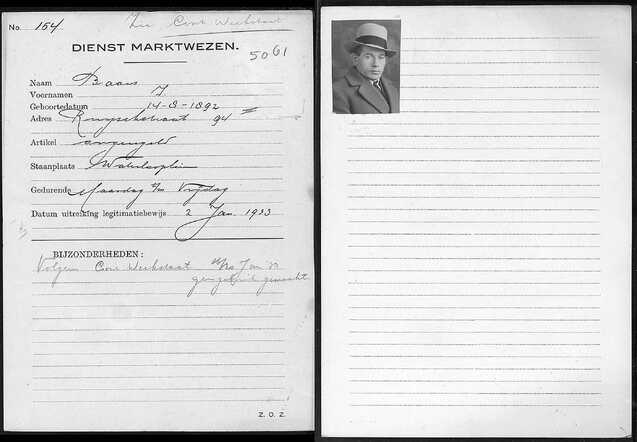 No. 154. Zie Cont. Weekstaat
DIENST MARKTWEZEN.
5061
Naam Baars
Voornamen J
Geboortedatum 14-8-1892
Adres Ruyschstraat 94 II
Artikel ongeregeld
Staanplaats Waterlooplein
Gedurende Maandag t/m Vrijdag
Datum uitreiking legitimatiebewijs 2 Jan. 1933
BIJZONDERHEDEN:
Volgens Cont Weekstaat Jan
gemaakt
Z.O.Z.